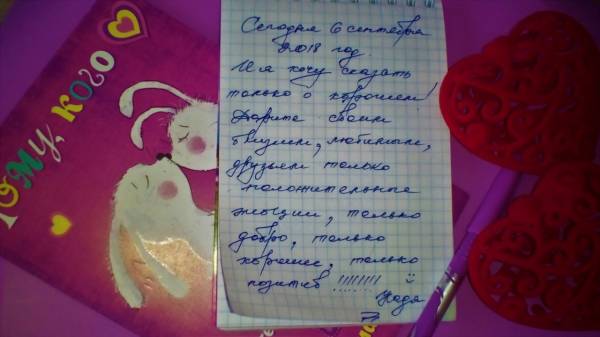 Тому, кого
Сегодня 6 сентября
2018 год.
И я хочу сказать
только о хорошем!
Дарите своим
близким, любимым,
друзьям только
положительные
эмоции, только
добро, только
хорошее, только
позитив !!!!!!!!
Надя